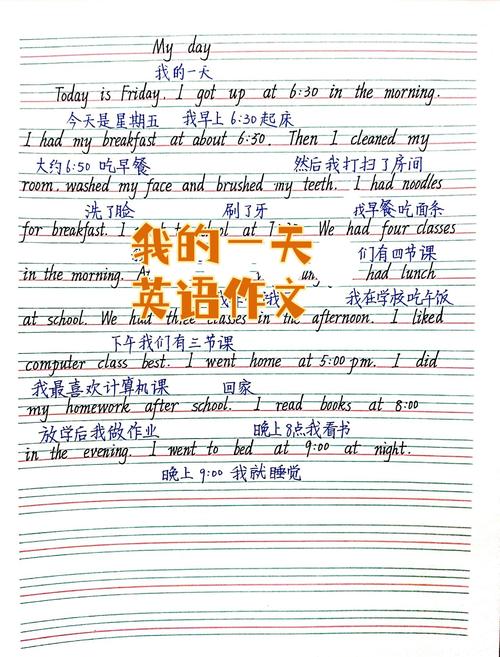 My day
我的一天
Today is Friday. I got up at 6:30 in the morning.
今天是星期五 我早上6:30起床
I had my breakfast at about 6:50. Then I cleaned my
大约6:50吃早餐 然后我打扫了房间
room, washed my face and brushed my teeth. I had noodles
洗了脸 刷了牙 我早餐吃面条
for breakfast. I at We had four classes
我的一天
们有四节课
in the morning. had lunch
英语作文
我在学校吃午饭
at school. We had three classes in the afternoon. I liked
下午我们有三节课
computer class best. I went home at 5:00 pm. I did
我最喜欢计算机课 回家
my homework after school. I read books at 8:00
放学后我做作业 晚上8点我看书
in the evening. I went to bed at 9:00 at night.
晚上9:00我就睡觉